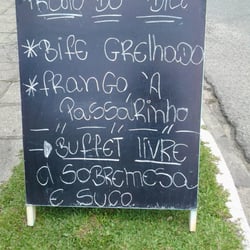 PREÇO DO DIA
*BIFE GRELHADO
*FRANGO À
PASSARINHO
→ BUFFET LIVRE
A SOBREMESA
E SUCO